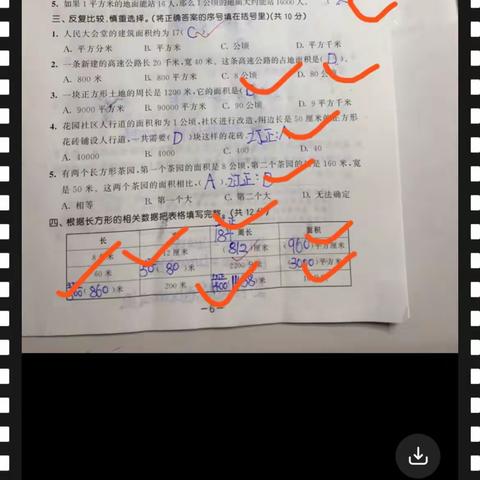 5. 如果1平方米的地面能站16人,那么1公顷的地面大约能站16000人。
三、反复比较,慎重选择。(将正确答案的序号填在括号里)(共10分)
1. 人民大会堂的建筑面积约为17( C )。
A. 平方分米 B. 平方米 C. 公顷 D. 平方千米
2. 一条新建的高速公路长20千米,宽40米,这条高速公路的占地面积是( D )。
A. 800米 B. 800平方米 C. 8公顷 D. 80公
3. 一块正方形土地的周长是1200米,它的面积是(
A. 9000平方米 B. 90000平方米 C. 90公顷 D. 9平方千米
4. 花园社区人行道的面积和为1公顷,社区进行改造,用边长是50厘米的正方形
花砖铺设人行道,一共需要( D )块这样的花砖 订正:A
A. 40000 B. 4000 C. 400 D. 40
5. 有两个长方形茶园,第一个茶园的面积是8公顷,第二个茶园的 是160米,宽
是50米。这两个茶园的面积相比,( A ) 订正:B
A. 相等 B. 第一个大 C. 第二个大 D. 无法确定
四、根据长方形的相关数据把表格填写完整。(共12分)
长 周长 面积
8 12厘米 812 厘米 (960)平方厘米
60米 (80)米 2200 (3000)平方米
(860)米 200米 米
—6—